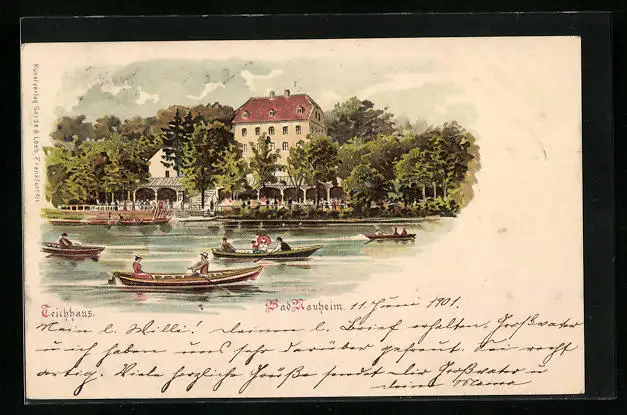 Kunstverlag Gerste & Loeb, Frankfurt a/M.
Teichhaus.
Bad Nauheim. 11. Juni 1901.
Mein l. Willi! Deinen l. Brief erhalten. Großvater
u ich haben uns sehr darüber gefreut. Sei recht
artig. Viele herzliche Grüße sendet Dir Großvater u
deine Mama